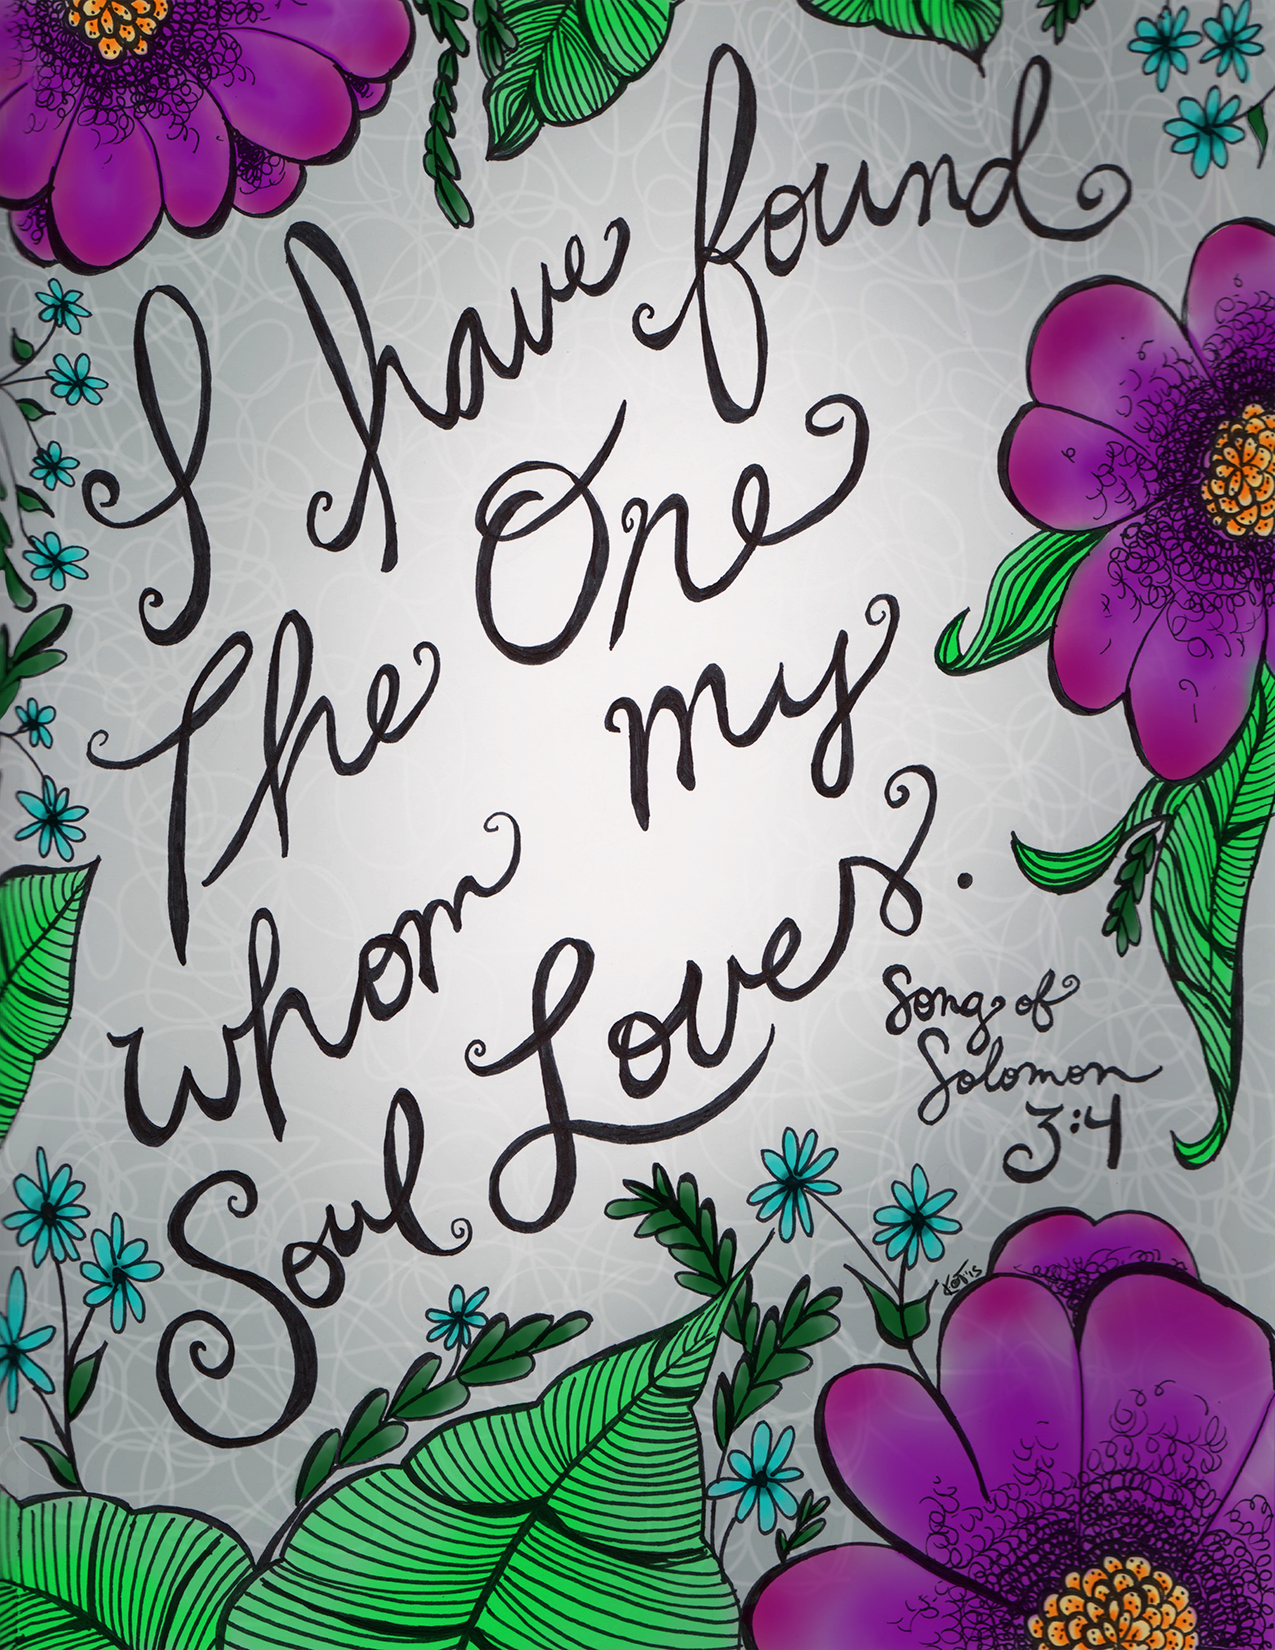 I have found
The One
whom my
Soul Loves.
Song of
Solomon
3:4